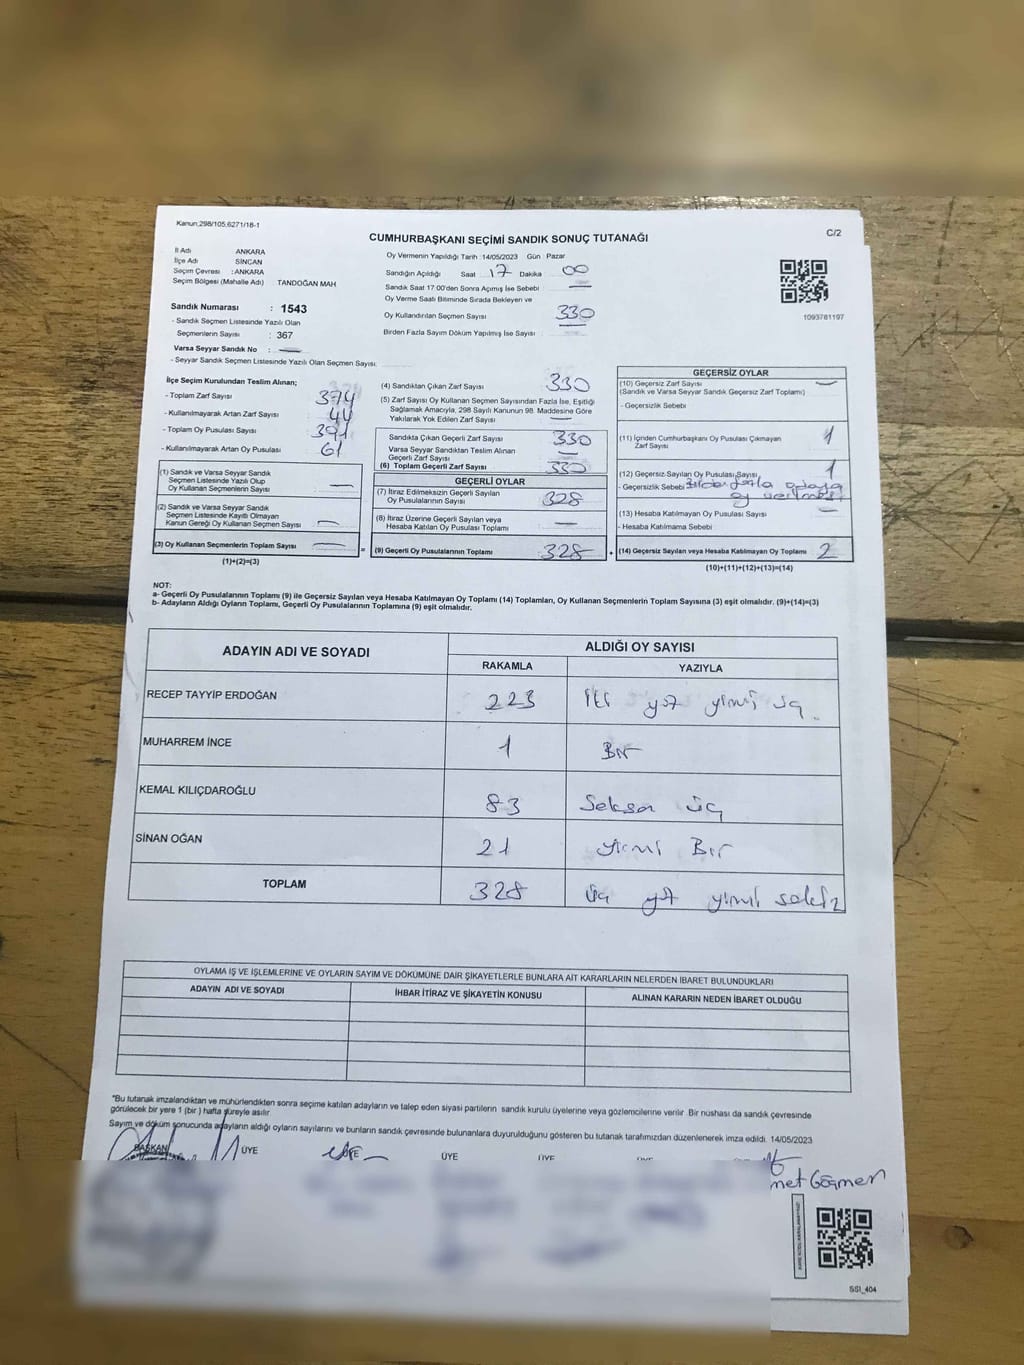 Kanun,298/105,6271/18-1
C/2
CUMHURBAŞKANI SEÇİMİ SANDIK SONUÇ TUTANAĞI
İl Adı ANKARA
İlçe Adı SİNCAN
Seçim Çevresi :ANKARA
Seçim Bölgesi (Mahalle Adı) TANDOĞAN MAH
Sandık Numarası : 1543
- Sandık Seçmen Listesinde Yazılı Olan
Seçmenlerin Sayısı : 367
Varsa Seyyar Sandık No :
- Seyyar Sandık Seçmen Listesinde Yazılı Olan Seçmen Sayısı:
Oy Vermenin Yapıldığı Tarih :14/05/2023 Gün : Pazar
Sandığın Açıldığı Saat 17 Dakika 00
Sandık Saat 17:00'den Sonra Açımış İse Sebebi
Oy Verme Saati Bitiminde Sırada Bekleyen ve
Oy Kullandırılan Seçmen Sayısı 330
Birden Fazla Sayım Döküm Yapılmış İse Sayısı
1093781197
İlçe Seçim Kurulundan Teslim Alınan;
- Toplam Zarf Sayısı 374
- Kullanılmayarak Artan Zarf Sayısı 44
- Toplam Oy Pusulası Sayısı 391
- Kullanılmayarak Artan Oy Pusulası 61
(1) Sandık ve Varsa Seyyar Sandık
Seçmen Listesinde Yazılı Olup
Oy Kullanan Seçmenlerin Sayısı
(2) Sandık ve Varsa Seyyar Sandık
Seçmen Listesinde Kayıtlı Olmayan
Kanun Gereği Oy Kullanan Seçmen Sayısı
(3) Oy Kullanan Seçmenlerin Toplam Sayısı
(1)+(2)=(3)
=
(4) Sandıktan Çıkan Zarf Sayısı 330
(5) Zarf Sayısı Oy Kullanan Seçmen Sayısından Fazla İse, Eşitliği
Sağlamak Amacıyla, 298 Sayılı Kanunun 98. Maddesine Göre
Yakılarak Yok Edilen Zarf Sayısı
Sandıkta Çıkan Geçerli Zarf Sayısı 330
Varsa Seyyar Sandıktan Teslim Alınan
Geçerli Zarf Sayısı
(6) Toplam Geçerli Zarf Sayısı 330
GEÇERLİ OYLAR
(7) İtiraz Edilmeksizin Geçerli Sayılan
Oy Pusulalarının Sayısı 328
(8) İtiraz Üzerine Geçerli Sayılan veya
Hesaba Katılan Oy Pusulası Toplamı
(9) Geçerli Oy Pusulalarının Toplamı 328
+
GEÇERSİZ OYLAR
(10) Geçersiz Zarf Sayısı
(Sandık ve Varsa Seyyar Sandık Geçersiz Zarf Toplamı)
- Geçersizlik Sebebi
(11) İçinden Cumhurbaşkanı Oy Pusulası Çıkmayan
Zarf Sayısı 1
(12) Geçersiz Sayılan Oy Pusulası Sayısı 1
- Geçersizlik Sebebi Birden fazla adaya
oy verilmesi
(13) Hesaba Katılmayan Oy Pusulası Sayısı
- Hesaba Katılmama Sebebi
(14) Geçersiz Sayılan veya Hesaba Katılmayan Oy Toplamı 2
(10)+(11)+(12)+(13)=(14)
NOT:
a- Geçerli Oy Pusulalarının Toplamı (9) ile Geçersiz Sayılan veya Hesaba Katılmayan Oy Toplamı (14) Toplamları, Oy Kullanan Seçmenlerin Toplam Sayısına (3) eşit olmalıdır. (9)+(14)=(3)
b- Adayların Aldığı Oyların Toplamı, Geçerli Oy Pusulalarının Toplamına (9) eşit olmalıdır.
ADAYIN ADI VE SOYADI ALDIĞI OY SAYISI
RAKAMLA YAZIYLA
RECEP TAYYİP ERDOĞAN 223 İki yüz yirmi üç
MUHARREM İNCE 1 Bir
KEMAL KILIÇDAROĞLU 83 Seksen üç
SİNAN OĞAN 21 yirmi Bir
TOPLAM 328 üç yüz yirmi sekiz
OYLAMA İŞ VE İŞLEMLERİNE VE OYLARIN SAYIM VE DÖKÜMÜNE DAİR ŞİKAYETLERLE BUNLARA AİT KARARLARIN NELERDEN İBARET BULUNDUKLARI
ADAYIN ADI VE SOYADI İHBAR İTİRAZ VE ŞİKAYETİN KONUSU ALINAN KARARIN NEDEN İBARET OLDUĞU
"Bu tutanak imzalandıktan ve mühürlendikten sonra seçime katılan adayların ve talep eden siyasi partilerin sandık kurulu üyelerine veya gözlemcilerine verilir. Bir nüshası da sandık çevresinde
görülecek bir yere 1 (bir ) hafta süreyle asılır.
Sayım ve döküm sonucunda adayların aldığı oyların sayılarını ve bunların sandık çevresinde bulunanlara duyurulduğunu gösteren bu tutanak tarafımızdan düzenlenerek imza edildi. 14/05/2023
BAŞKAN ÜYE ÜYE ÜYE ÜYE
met Göçmen
SSI_404